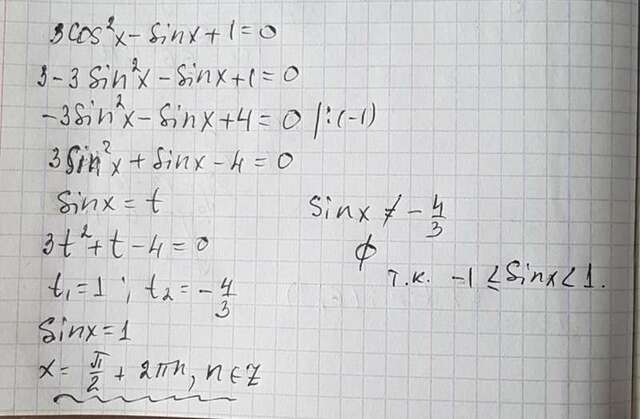 3cos²x - sinx + 1 = 0
3 - 3sin²x - sinx + 1 = 0
-3sin²x - sinx + 4 = 0 |:(-1)
3sin²x + sinx - 4 = 0
sinx = t
3t² + t - 4 = 0
t₁ = 1 ; t₂ = -4/3
sinx = 1
x = π/2 + 2πn, n ∈ Z
sinx ≠ -4/3
∅
т.к. -1 ≤ sinx < 1.